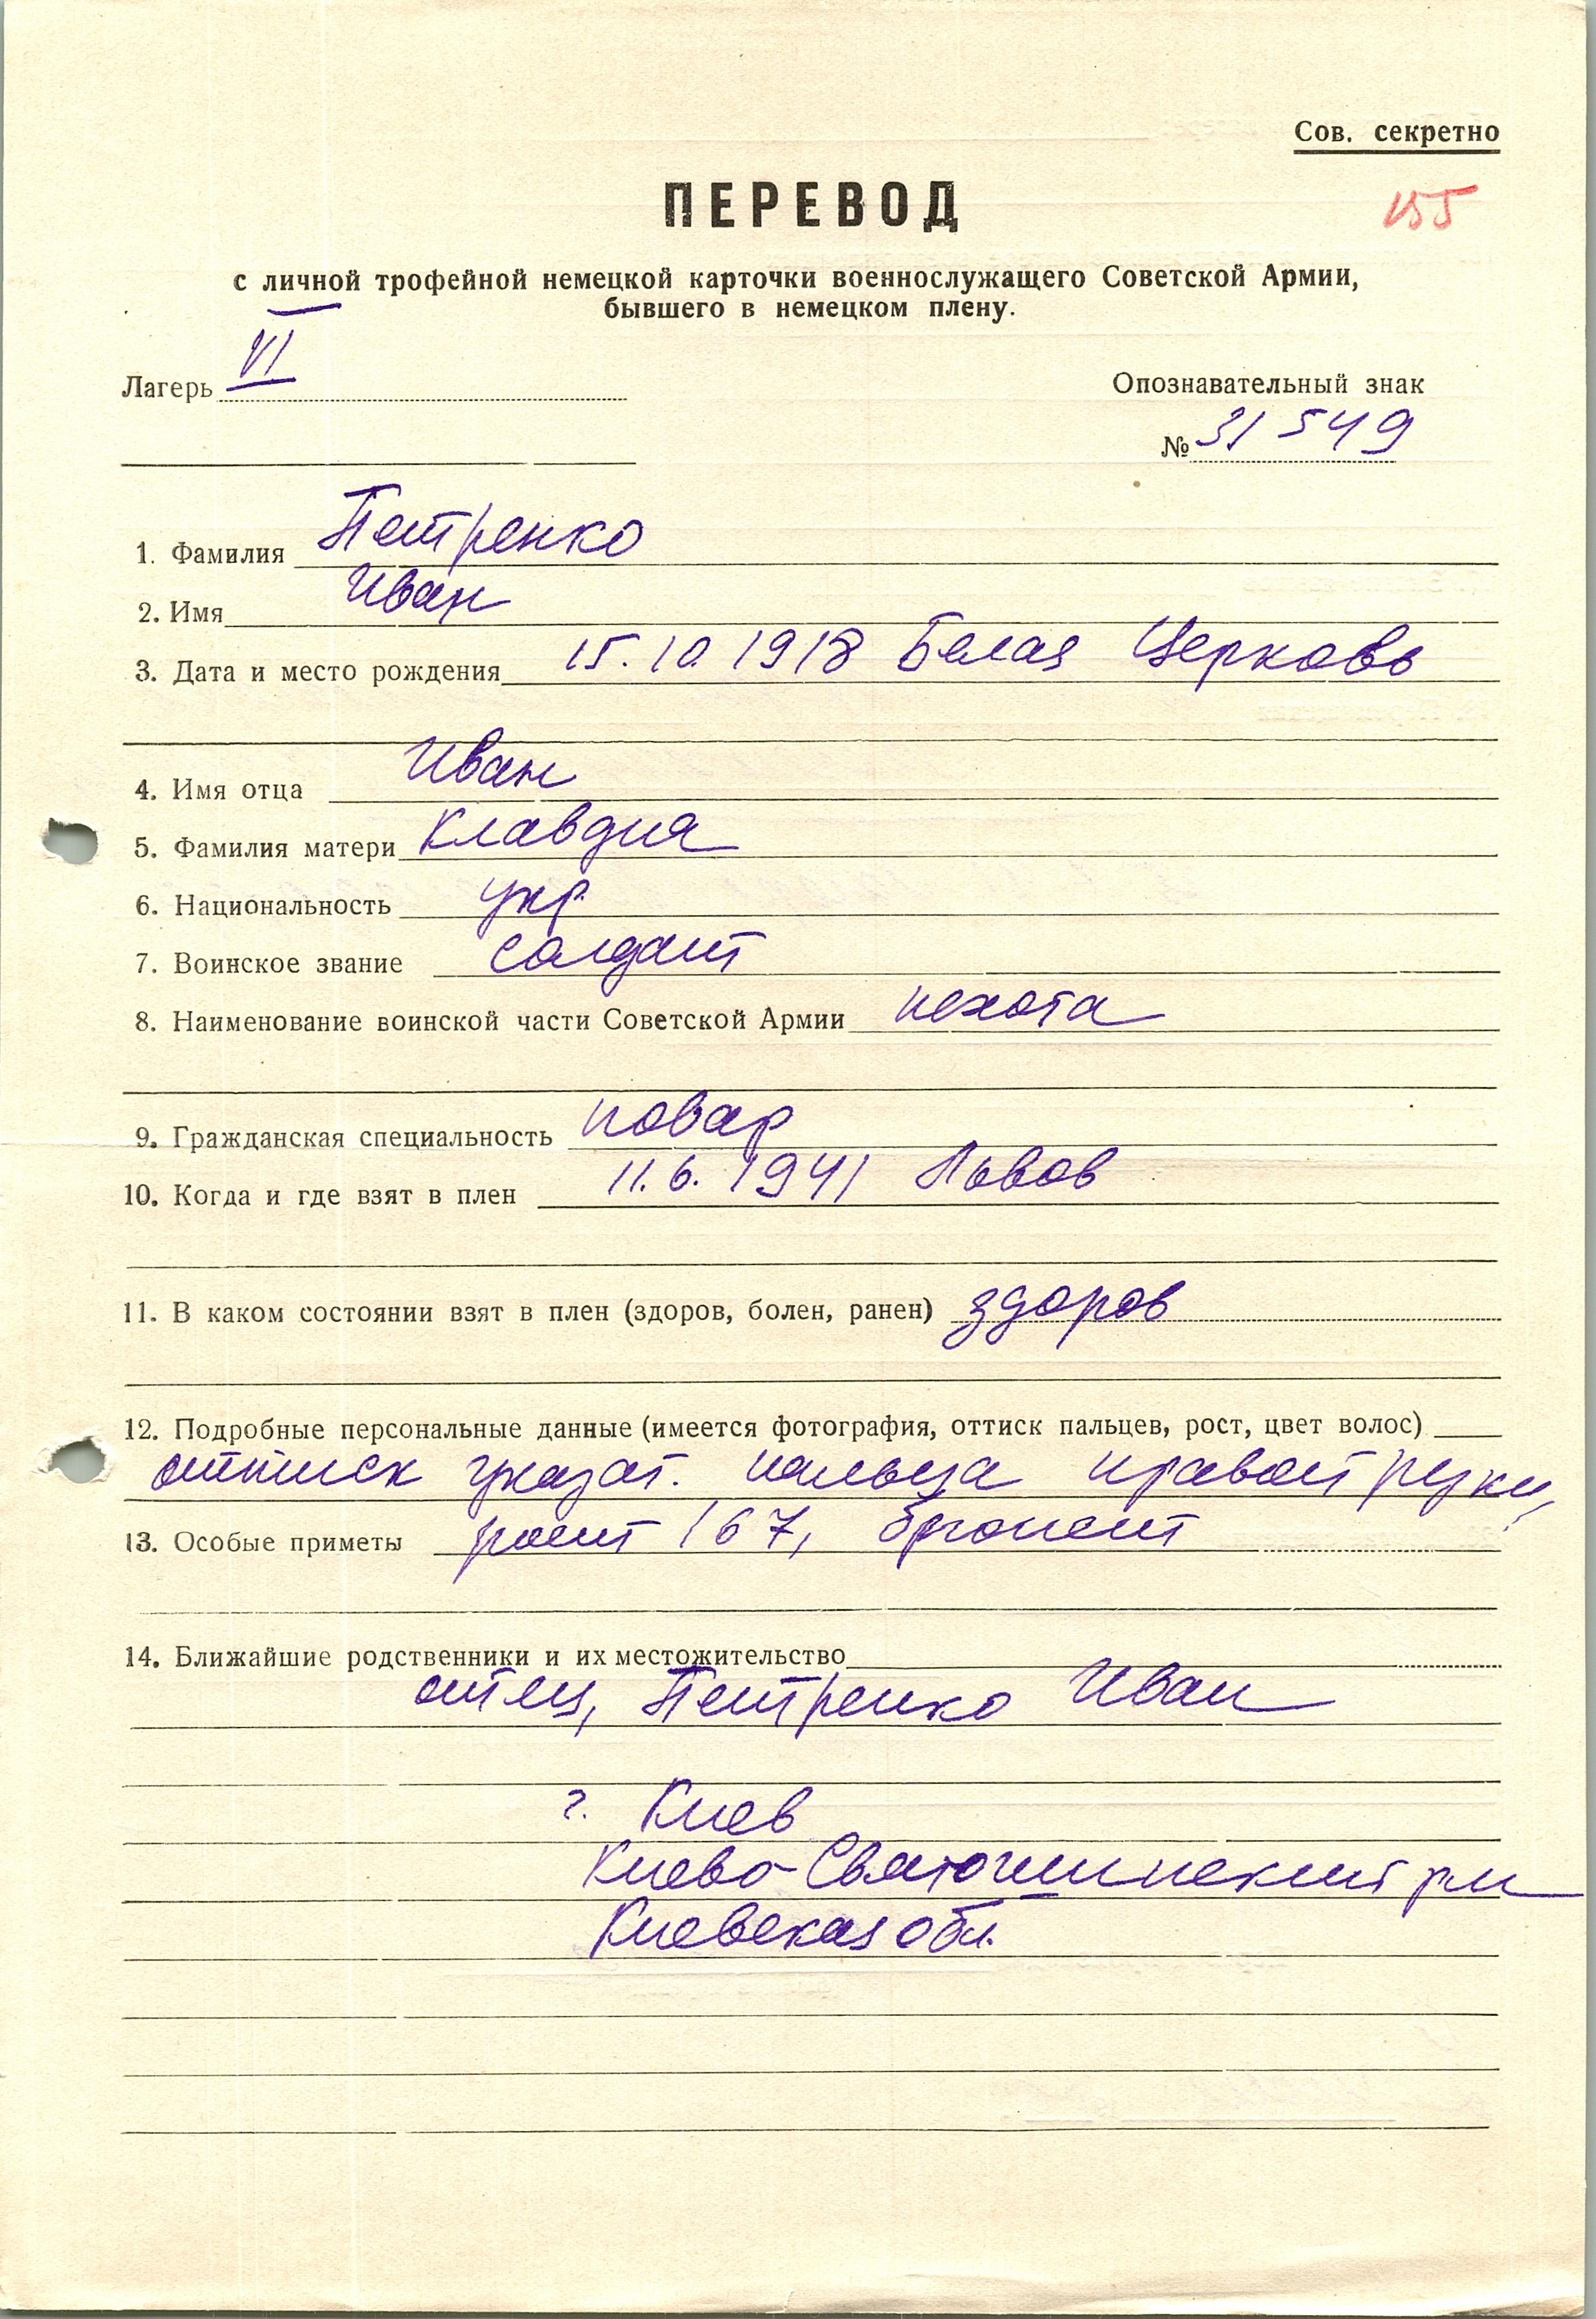 Сов. секретно
ПЕРЕВОД
155
с личной трофейной немецкой карточки военнослужащего Советской Армии,
бывшего в немецком плену.
Лагерь VI
Опознавательный знак
№ 31549
1. Фамилия Петренко
2. Имя Иван
3. Дата и место рождения 15.10.1918 Белая Церковь
4. Имя отца Иван
5. Фамилия матери Клавдия
6. Национальность укр.
7. Воинское звание солдат
8. Наименование воинской части Советской Армии пехота
9. Гражданская специальность повар
10. Когда и где взят в плен 11.6.1941 Львов
11. В каком состоянии взят в плен (здоров, болен, ранен) здоров
12. Подробные персональные данные (имеется фотография, оттиск пальцев, рост, цвет волос)
оттиск указат. пальца правой руки,
13. Особые приметы рост 167, брюнет
14. Ближайшие родственники и их местожительство
отец, Петренко Иван
г. Киев
Киево-Святошинский
Киевская обл.